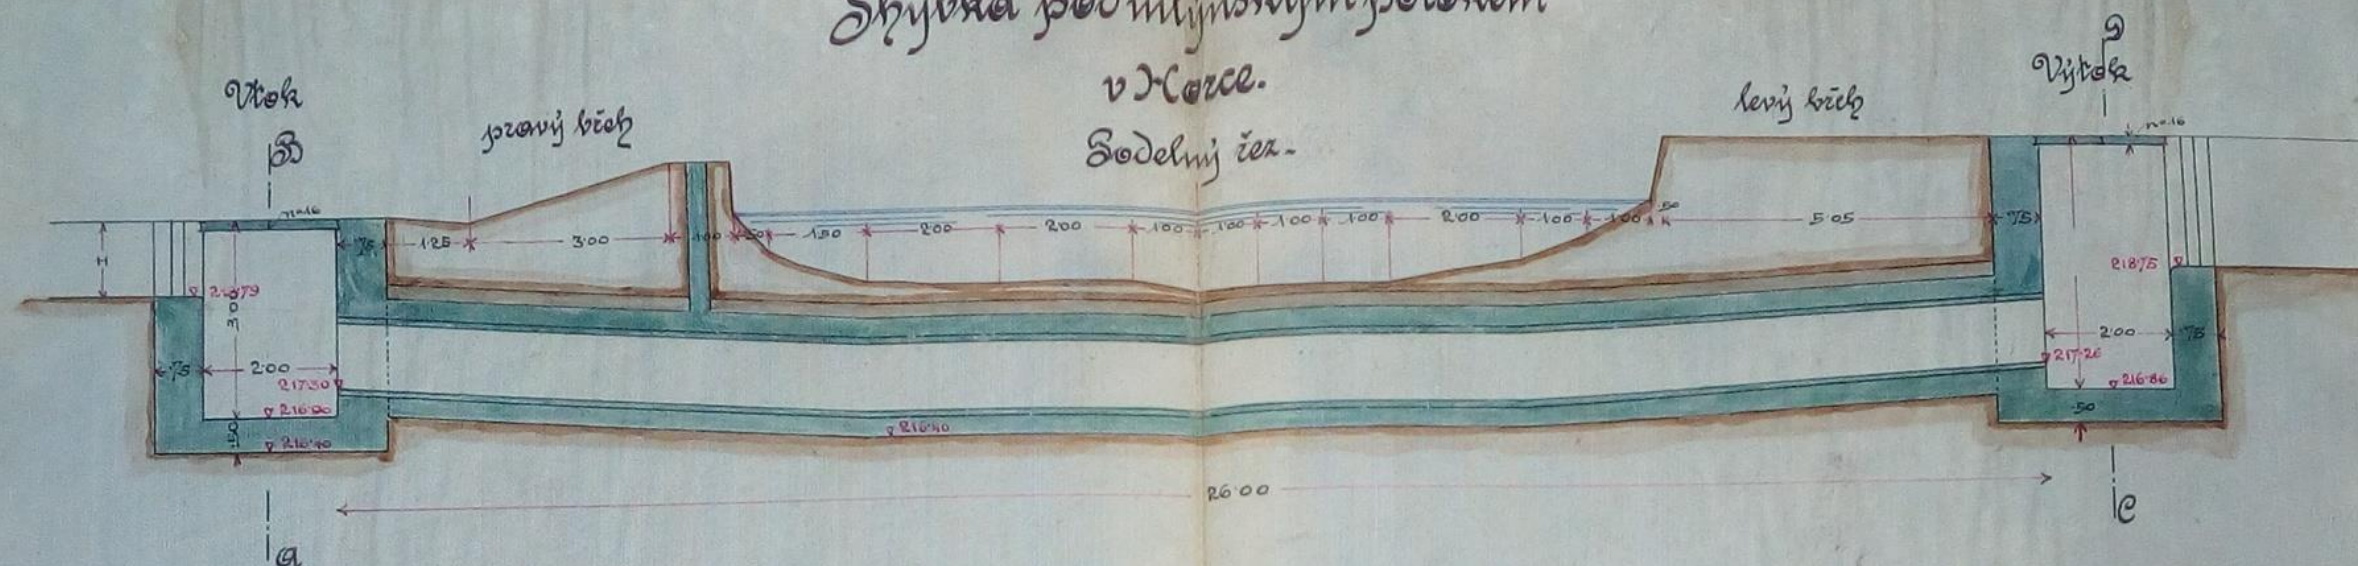 Shybka pod mlýnským potokem
v Horce.
Podelný řez.
Vtok
B
pravý břeh
levý břeh
Výtok
D
n=16
n=16
H
·75
1·25
3·00
1·00
·50
1·50
2·00
2·00
1·00
1·00
1·00
1·00
2·00
1·00
1·00
·50
5·05
·75
218·75
3·00
·75
2·00
217·30
2·00
·75
217·26
216·86
·50
·50
216·90
216·40
216·40
26·00
A
C